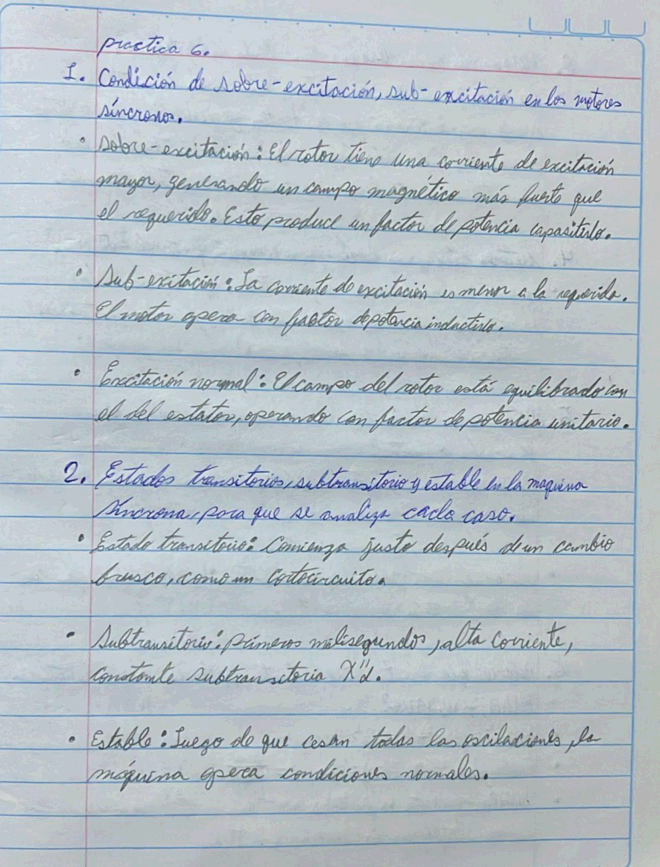 practica 6.
1. Condición de sobre-excitación, sub-excitación en los motores
síncronos.
• Sobre-excitación: El rotor tiene una corriente de excitación
mayor, generando un campo magnético más fuerte que
el requerido. Esto produce un factor de potencia capasitivo.
• Sub-exitación: La corriente de excitación es menor a la requerida.
El motor opera con factor de potencia inductivo.
• Excitación normal: El campo del rotor está equilibrado con
el del estator, operando con factor de potencia unitario.
2. Estados transitorios, subtransitorio y estable en la maquina
síncrona, para que se analiza cada caso.
• Estado transitorio: Comienza justo después de un cambio
brusco, como un cortocircuito.
• Subtransitorio: primeros milisegundos, alta corriente,
constante subtransitoria X"d.
• Estable: Luego de que cesan todas las oscilaciones, la
máquina opera condiciones normales.